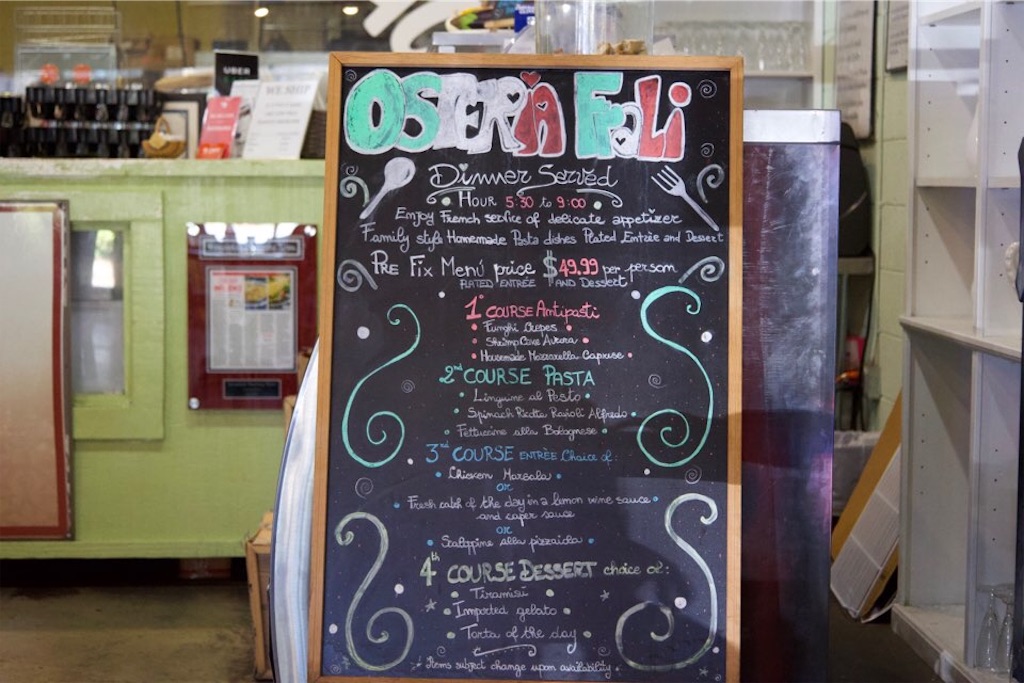 UBER
WE SHIP
OSTERIA FELLI
Dinner Served
Hour 5:30 to 9:00
Enjoy French service of delicate appetizer
Family style Homemade Pasta dishes Plated Entrèe and Dessert
Pre Fix Menú price $49.99 per person
PLATED ENTRÉE AND DESSERT
1° COURSE Antipasti
Funghi Crepes
Shrimp Cave Aurora
Housemade Mozzarella Caprese
2nd COURSE PASTA
Linguine al Pesto
Spinach Ricotta Ravioli Alfredo
Fettuccine alla Bolognese
3rd COURSE ENTRÈE Choice of:
Chicken Marsala
or
Fresh catch of the day in a lemon wine sauce
and caper sauce
or
Scaloppine alla pizzaiola
4th COURSE DESSERT choice of:
Tiramisi
Imported gelato
Torta of the day
Items subject change upon availability.